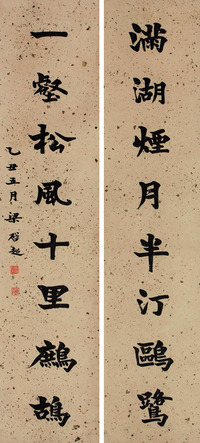 滿湖煙月半汀鷗鷺
一壑松風十里鷓鴣
乙丑五月梁啓超